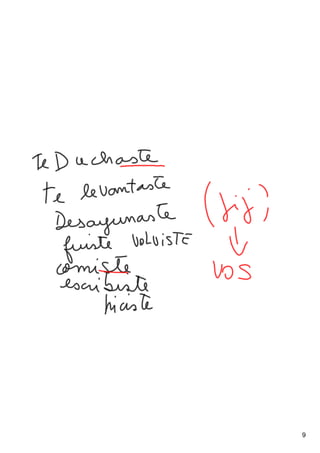 Te Duchaste
te levantaste
Desayunaste
fuiste VOLVISTE
comiste
VOS
escribiste
hiciste
9